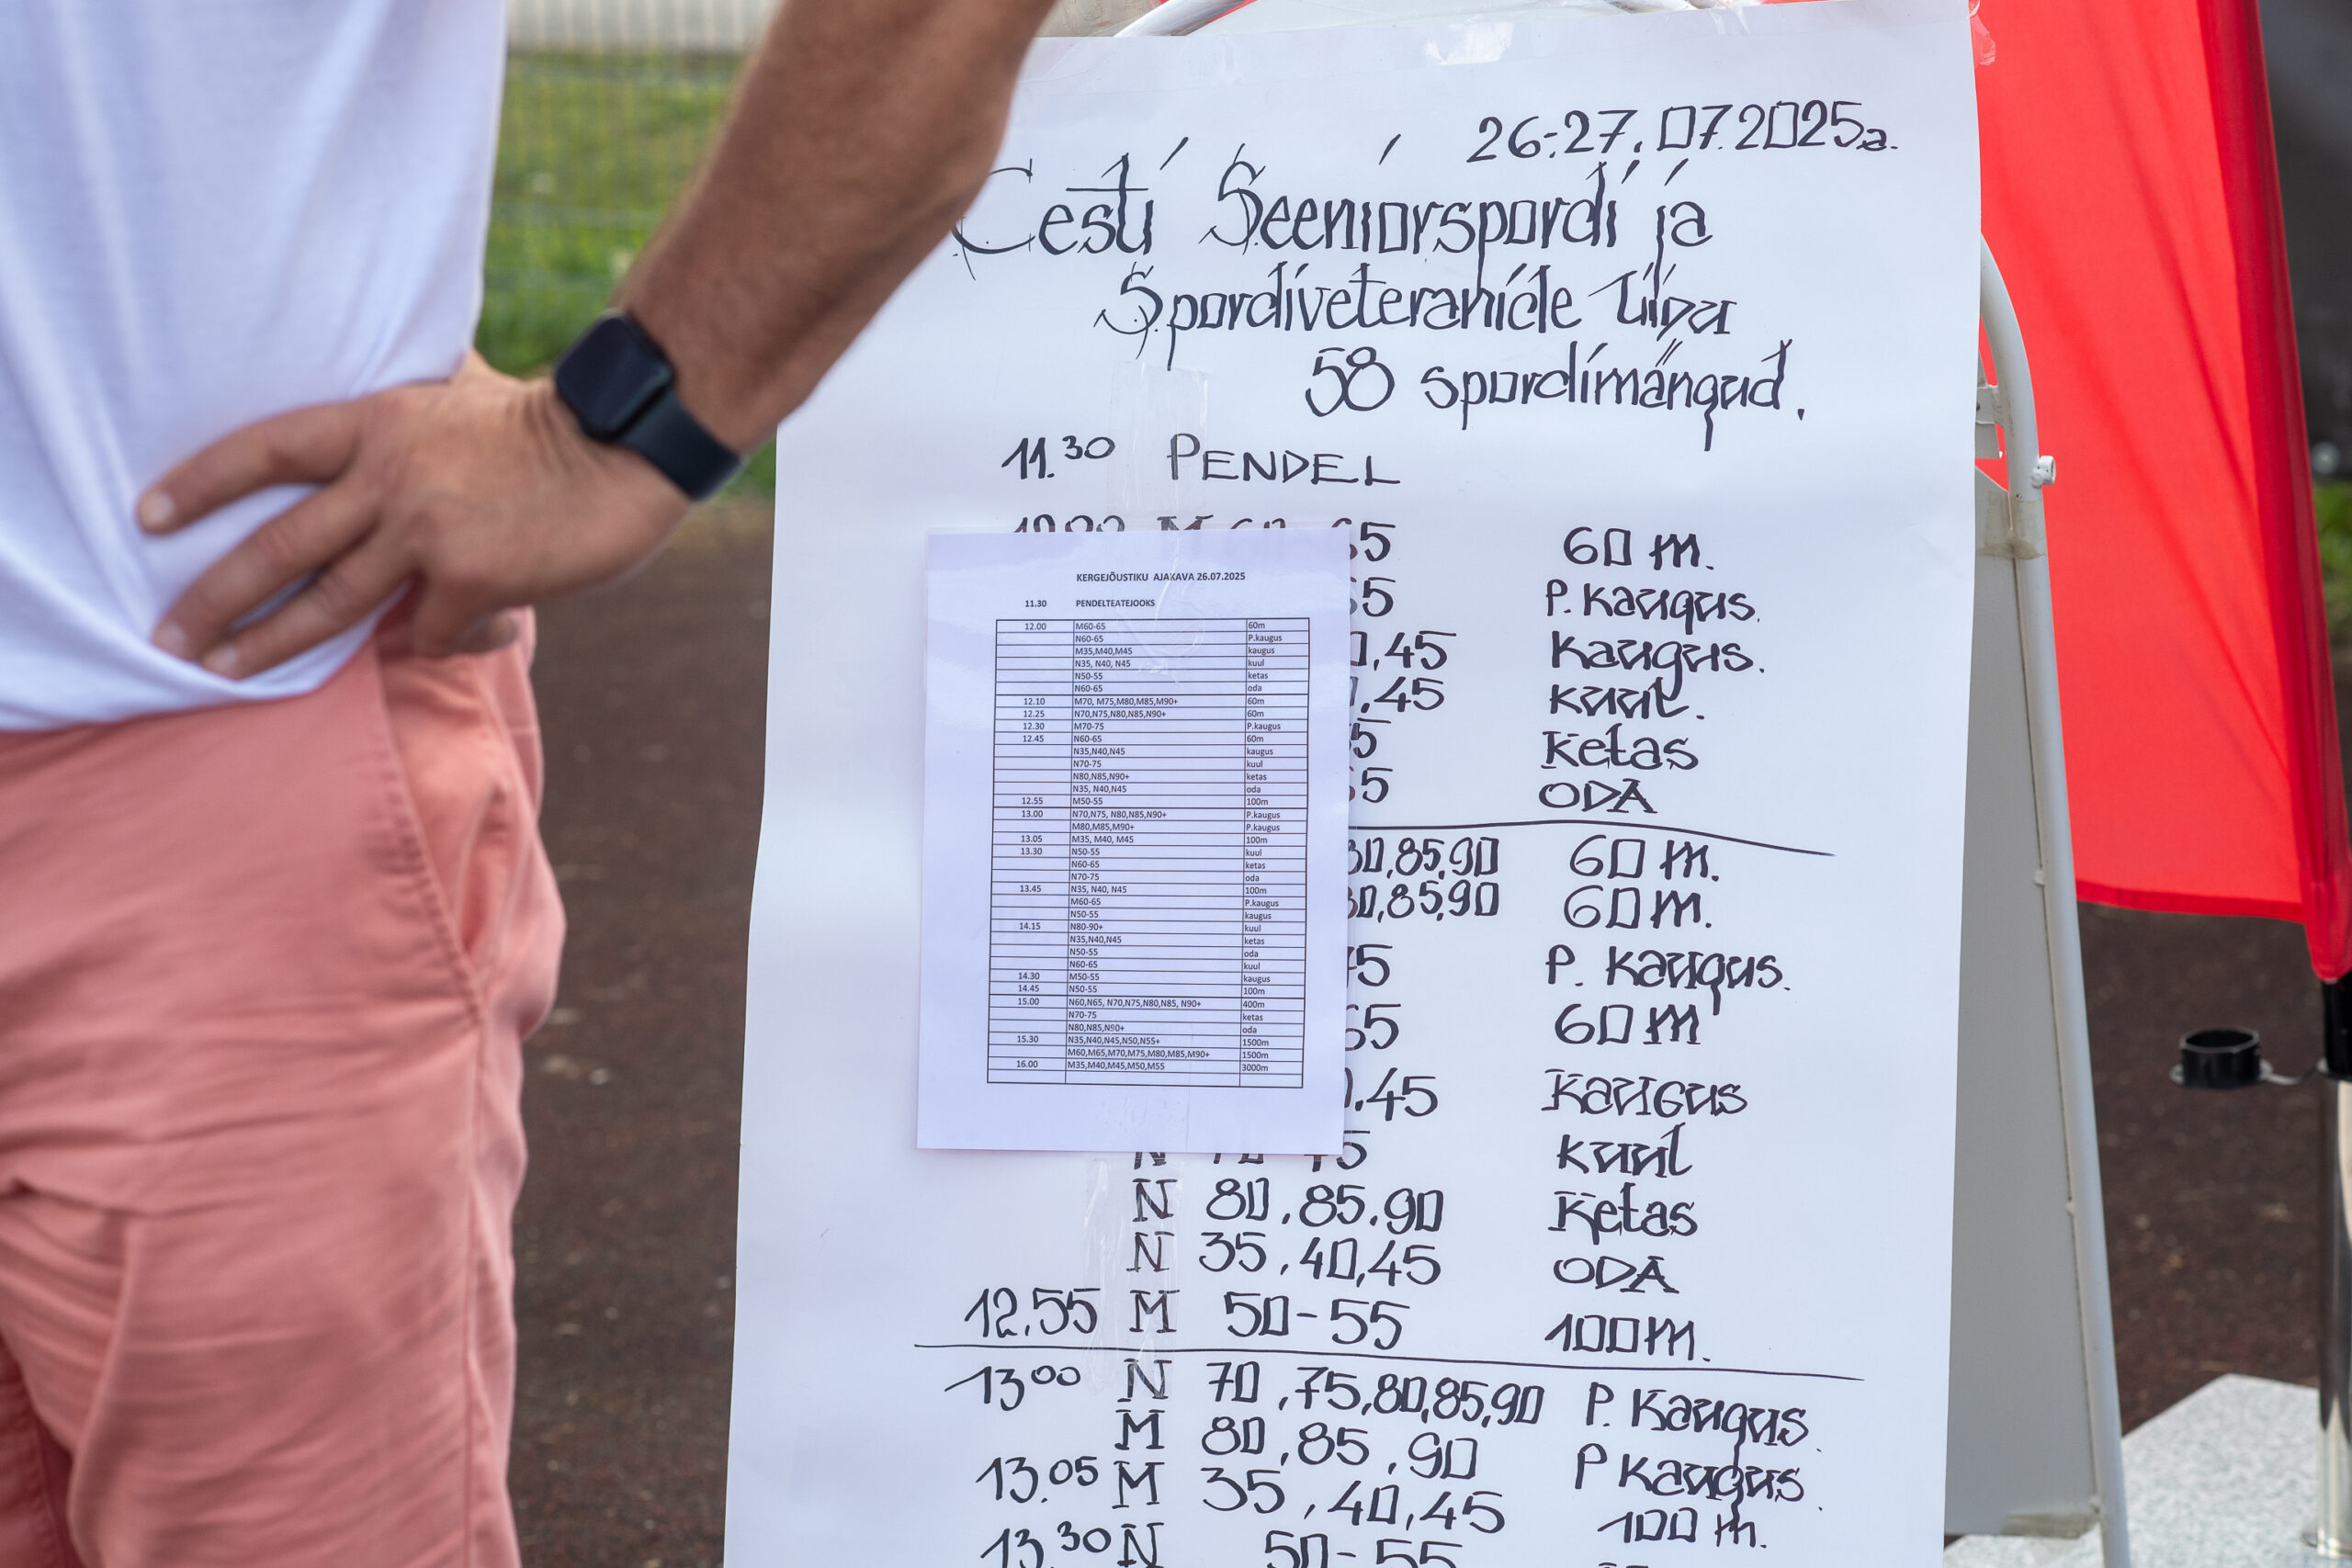 26-27.07.2025a.
Eesti Seeniorspordi ja
Spordiveteranide Liidu
58 spordimängud.
11.30 PENDEL
65 60 m.
55 P. Kaugus.
,45 Kaugus.
,45 kuul.
5 Ketas
65 ODA
80,85,90 60 m.
80,85,90 60 m.
75 P. Kaugus.
65 60 m
.45 Kaugus
N 75 kuul
N 80,85,90 Ketas
N 35,40,45 ODA
12.55 M 50-55 100 m.
13.00 N 70,75,80,85,90 P. Kaugus.
M 80,85,90 P Kaugus.
13.05 M 35,40,45 100 m.
13.30 N 50-55
KERGEJÕUSTIKU AJAKAVA 26.07.2025
11.30 PENDELTEATEJOOKS
12.00 M60-65 60m
N60-65 P.kaugus
M35,M40,M45 kaugus
N35, N40, N45 kuul
N50-55 ketas
N60-65 oda
12.10 M70, M75,M80,M85,M90+ 60m
12.25 N70,N75,N80,N85,N90+ 60m
12.30 M70-75 P.kaugus
12.45 N60-65 60m
N35,N40,N45 kaugus
N70-75 kuul
N80,N85,N90+ ketas
N35, N40,N45 oda
12.55 M50-55 100m
13.00 N70,N75, N80,N85,N90+ P.kaugus
M80,M85,M90+ P.kaugus
13.05 M35, M40, M45 100m
13.30 N50-55 kuul
N60-65 ketas
N70-75 oda
13.45 N35, N40, N45 100m
M60-65 P.kaugus
N50-55 kaugus
14.15 N80-90+ kuul
N35,N40,N45 ketas
N50-55 oda
N60-65 kuul
14.30 M50-55 kaugus
14.45 N50-55 100m
15.00 N60,N65, N70,N75,N80,N85, N90+ 400m
N70-75 ketas
N80,N85,N90+ oda
15.30 N35,N40,N45,N50,N55+ 1500m
M60,M65,M70,M75,M80,M85,M90+ 1500m
16.00 M35,M40,M45,M50,M55 3000m